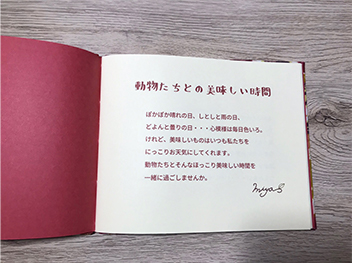 動物たちとの美味しい時間
ぽかぽか晴れの日、しとしと雨の日、
どよんと曇りの日・・・心模様は毎日色いろ。
けれど、美味しいものはいつも私たちを
にっこりお天気にしてくれます。
動物たちとそんなほっこり美味しい時間を
一緒に過ごしませんか。
miya